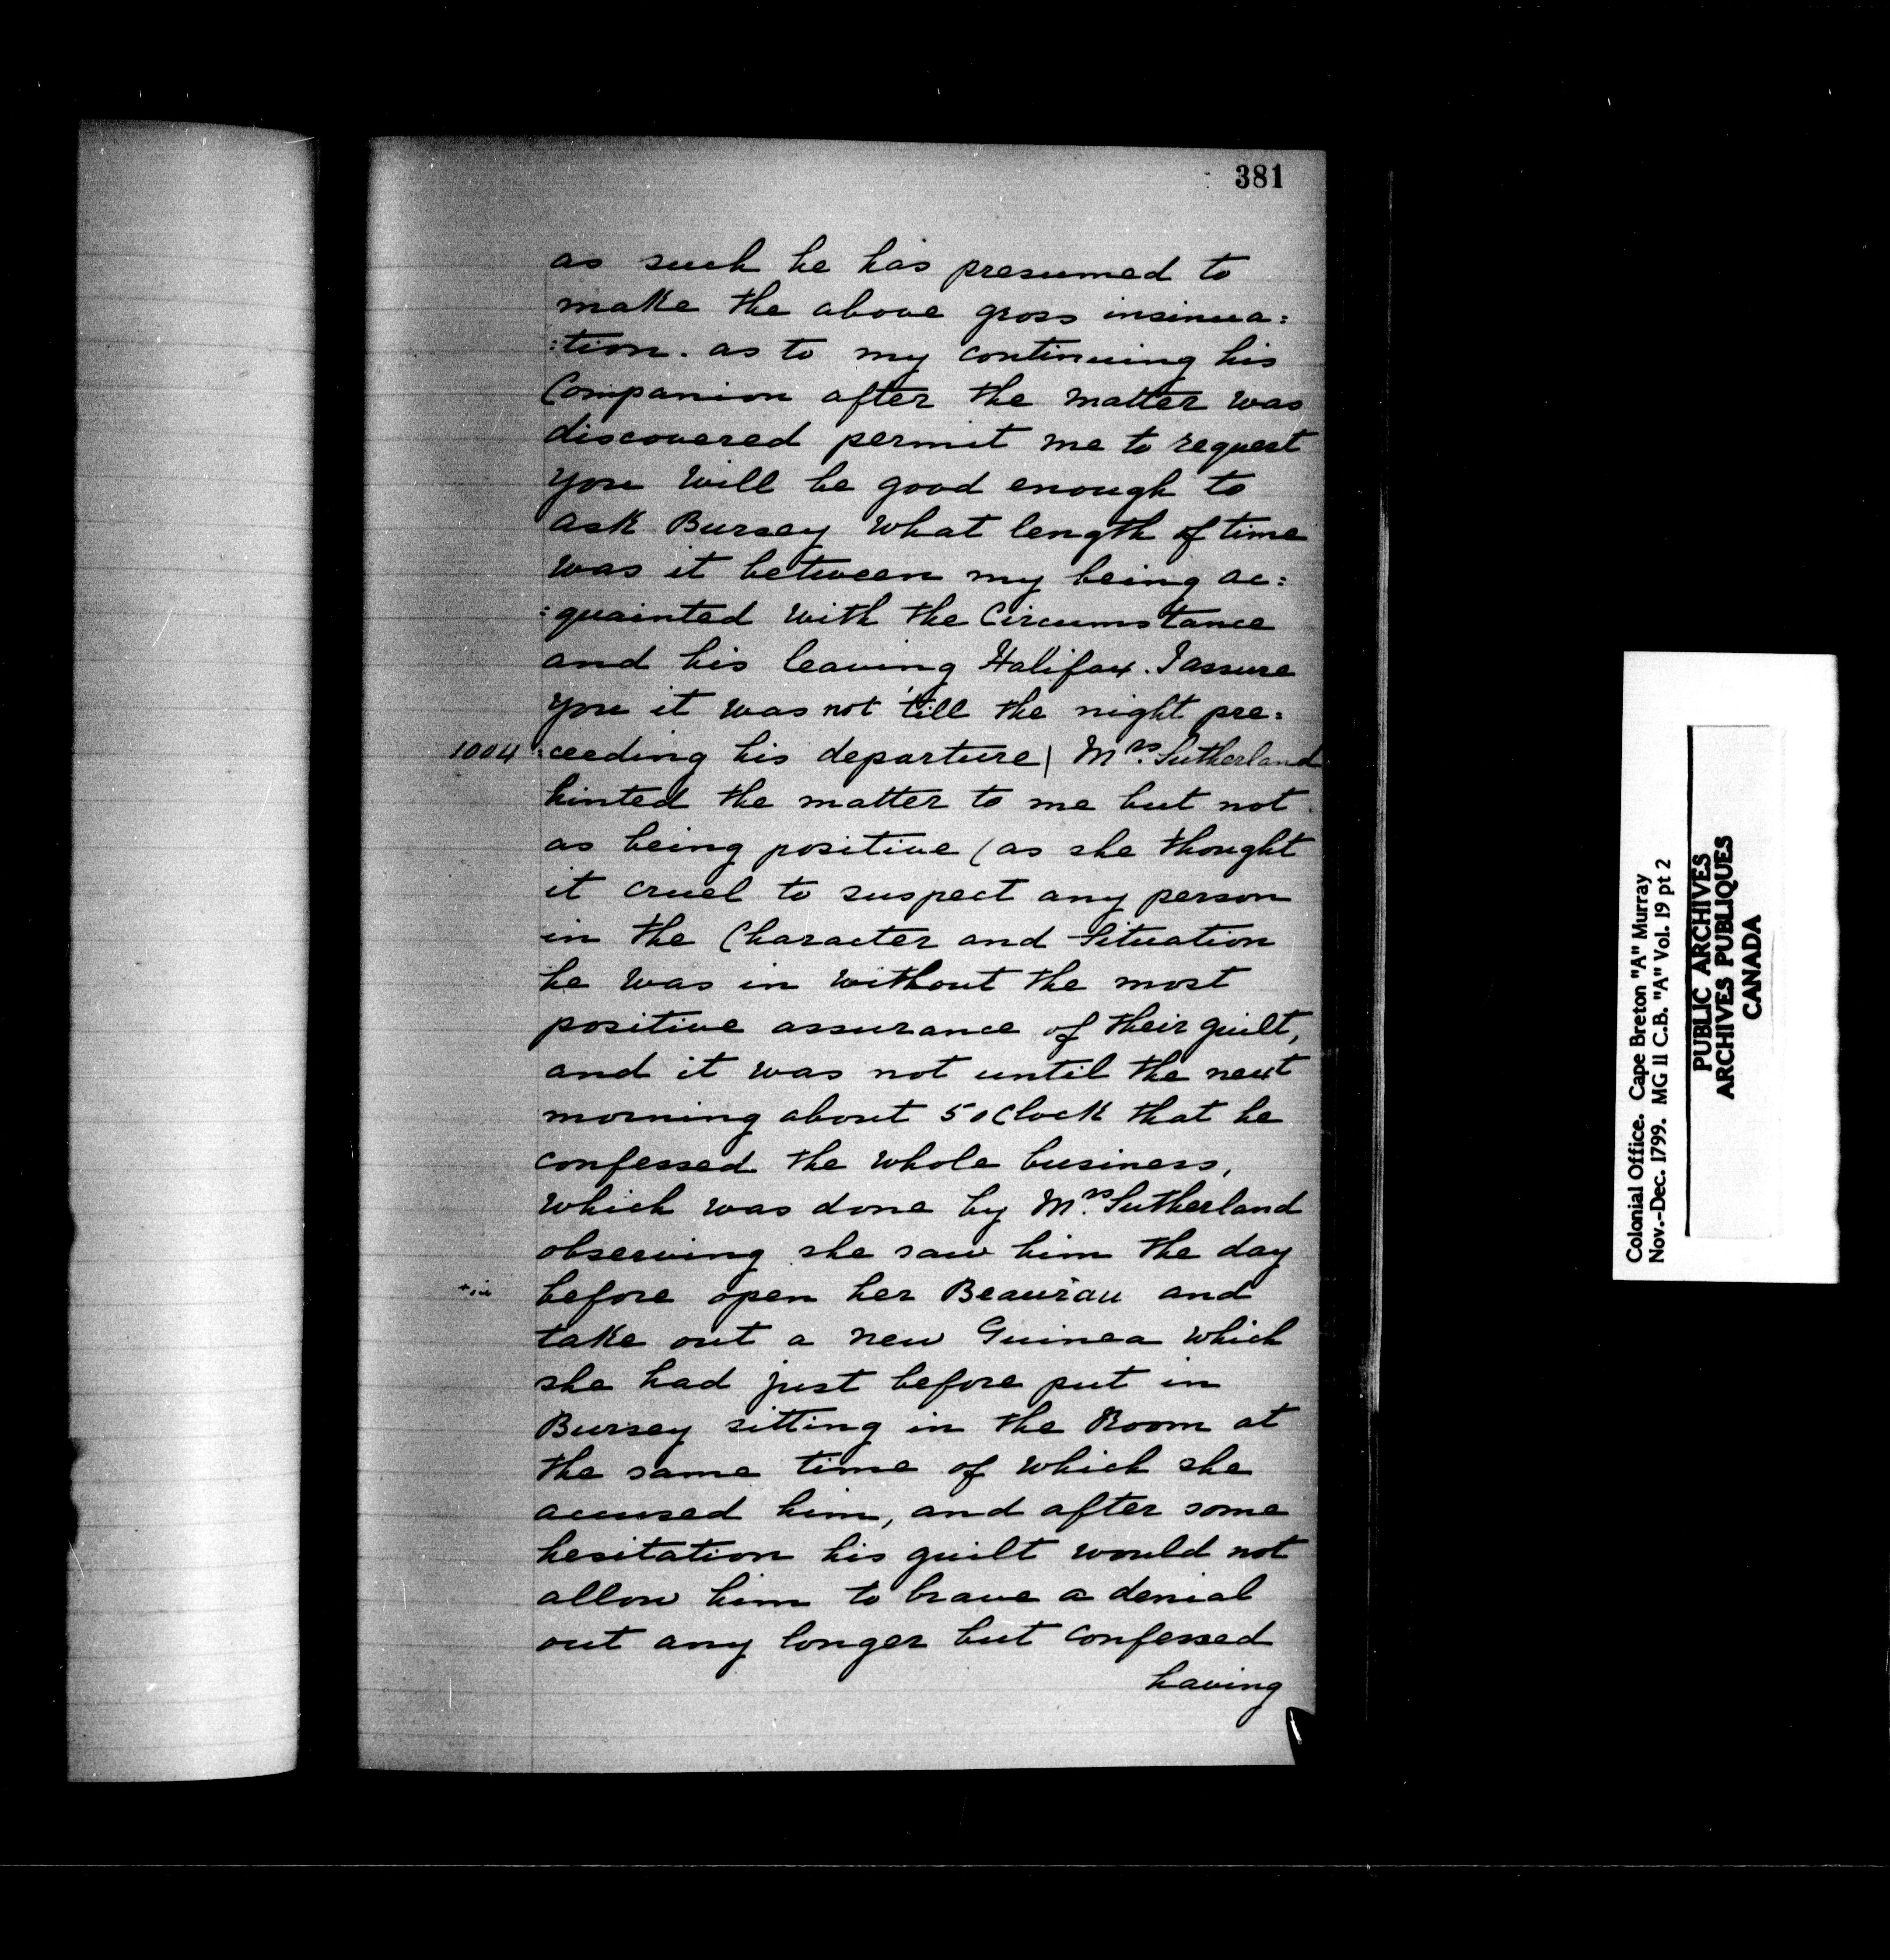 381
as such he has presumed to
make the above gross insinua:
:tion. as to my continuing his
Companion after the matter was
discovered permit me to request
you will be good enough to
ask Bursey what length of time
was it between my being ac:
:quainted with the Circumstance
and his leaving Halifax. I assure
you it was not 'till the night pre:
1004 :ceeding his departure | Mrs. Sutherland
hinted the matter to me but not
as being positive (as she thought
it cruel to suspect any person
in the Character and Situation
he was in without the most
positive assurance of their guilt,
and it was not until the next
morning about 5 oClock that he
confessed the whole business,
which was done by Mrs. Sutherland
observing she saw him the day
before open her Beaurau and
take out a new Guinea which
she had just before put in
Bursey sitting in the Room at
the same time of which she
accused him, and after some
hesitation his guilt would not
allow him to brave a denial
out any longer but confessed
having
Colonial Office. Cape Breton "A" Murray
Nov.-Dec. 1799. MG 11 C.B. "A" Vol. 19 pt 2
PUBLIC ARCHIVES
ARCHIVES PUBLIQUES
CANADA